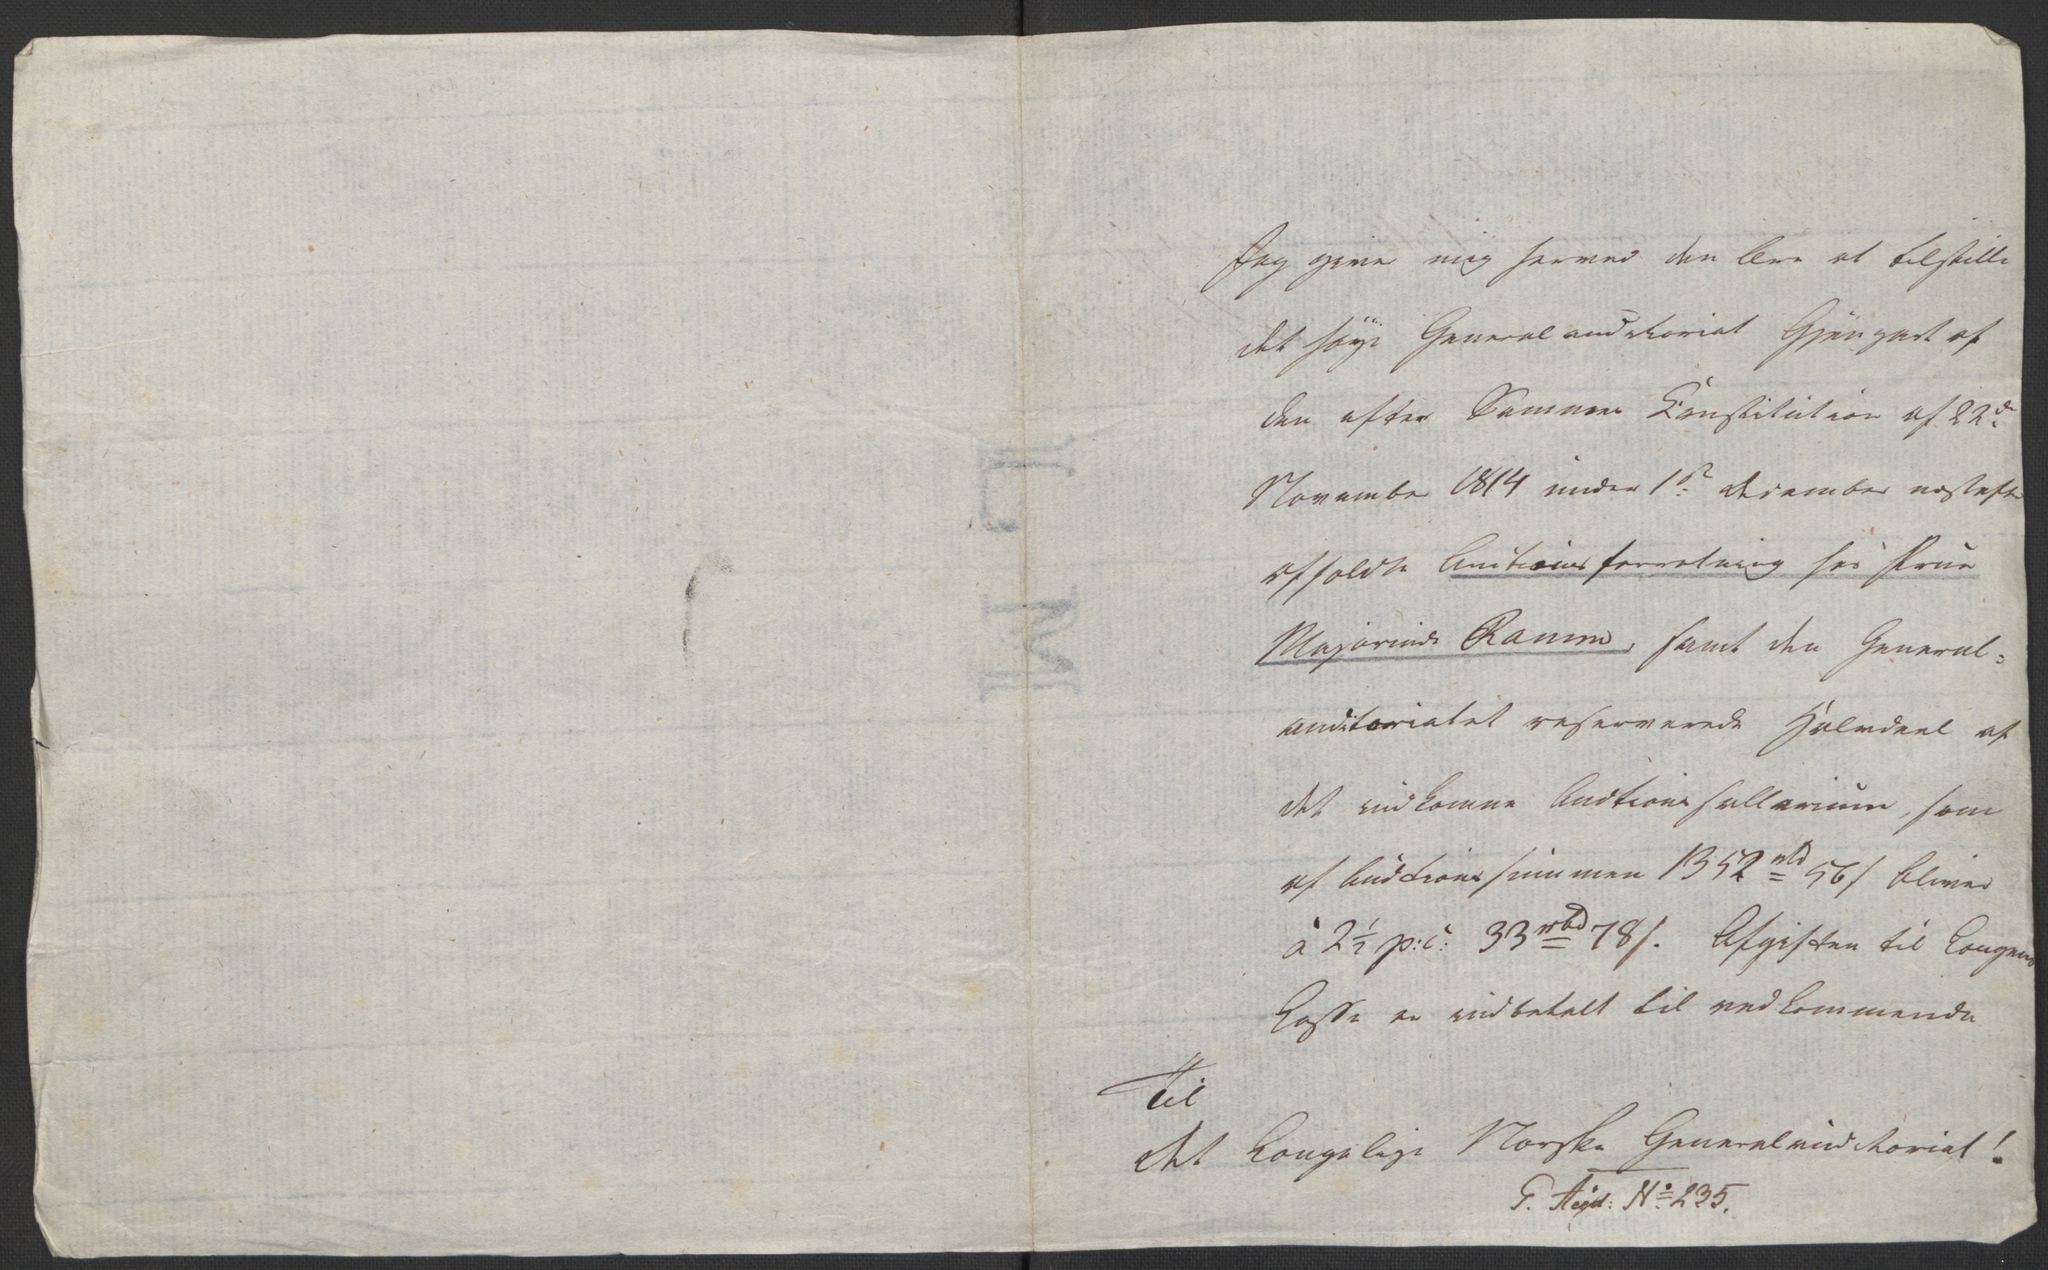 Jeg giver mig herved den Ære at tilstille
det høye Generalauditoriat Gjenpart af
den efter Sammes Constitution af 22de
November 1814 under 1ste December næstefter
afholdte Auctionsforretning hos Frue
Majorinde Ramm, samt den General-
auditoriatet reserverede Halvdeel af
det indkomne Auctionssallarium, som
af Auctionssummen 1352 rbd 56 s bliver
à 2½ p: C: 33 rbd 78 s. Afgiften til Kongens
Casse er indbetalt til vedkommende
Til
det kongelige Norske Generalauditoriat!
G. Aud: No 235.